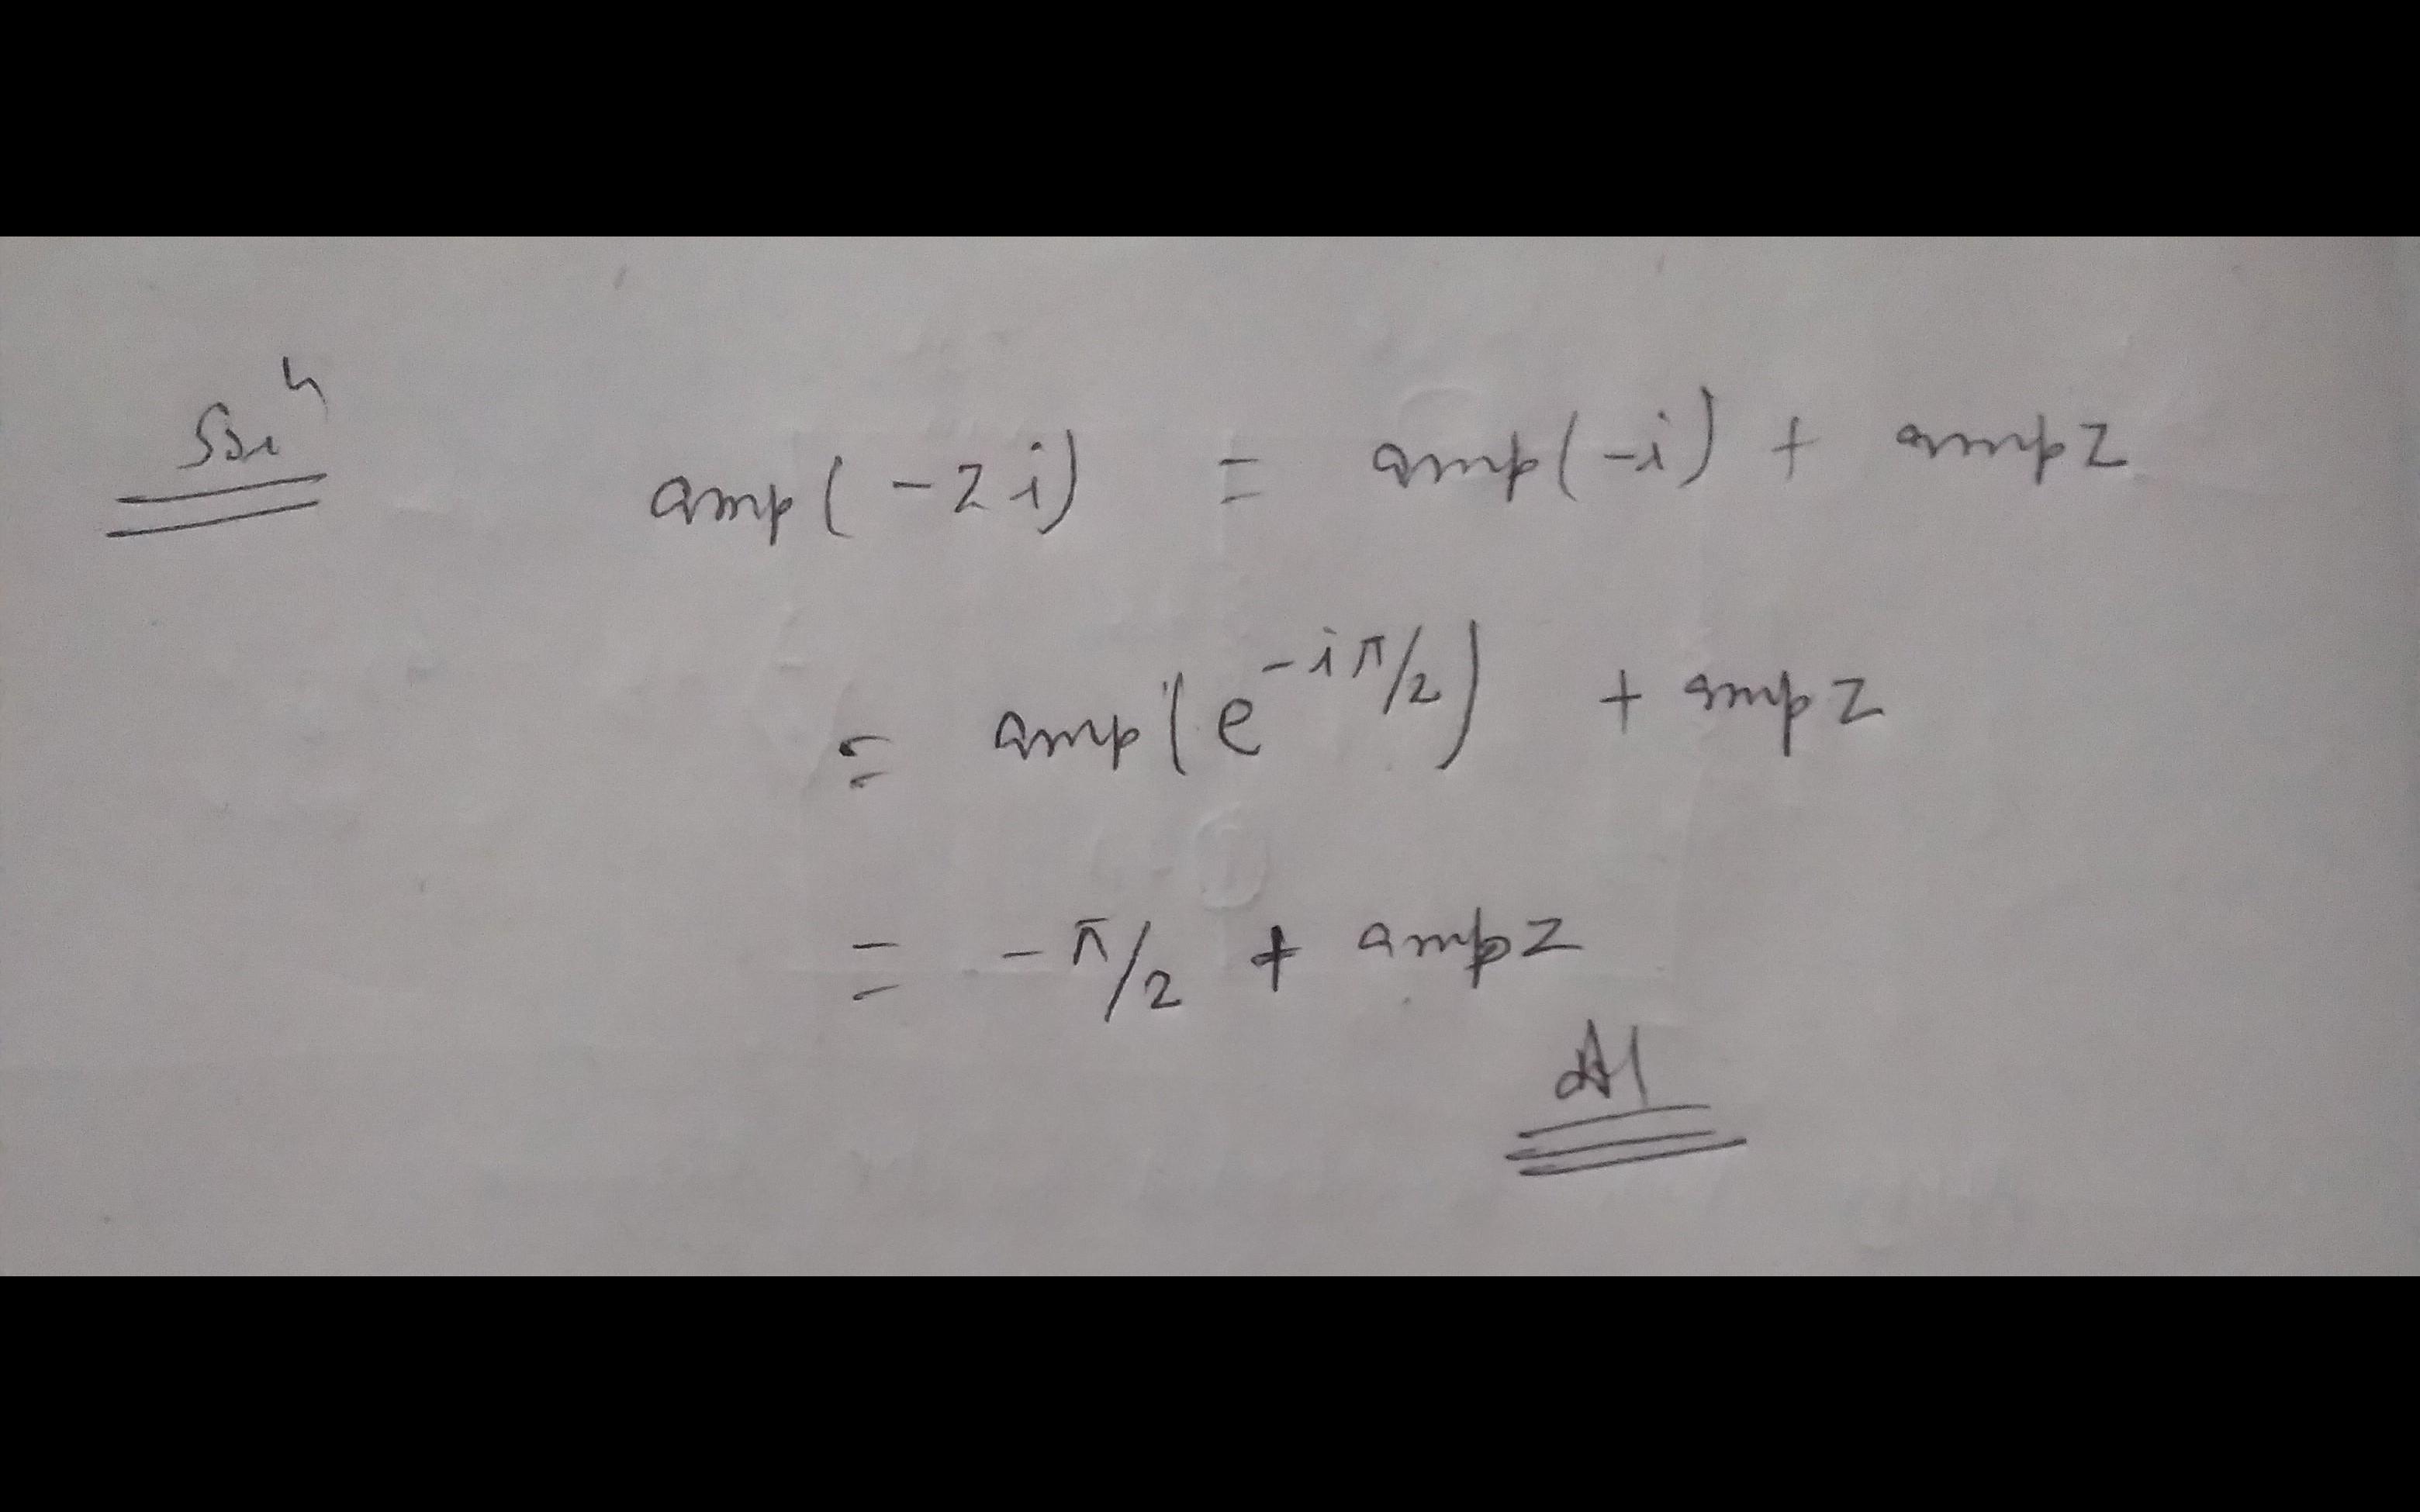 Solⁿ
amp(-zi) = amp(-i) + amp z
= amp(e^{-iπ/2}) + amp z
= -π/2 + amp z